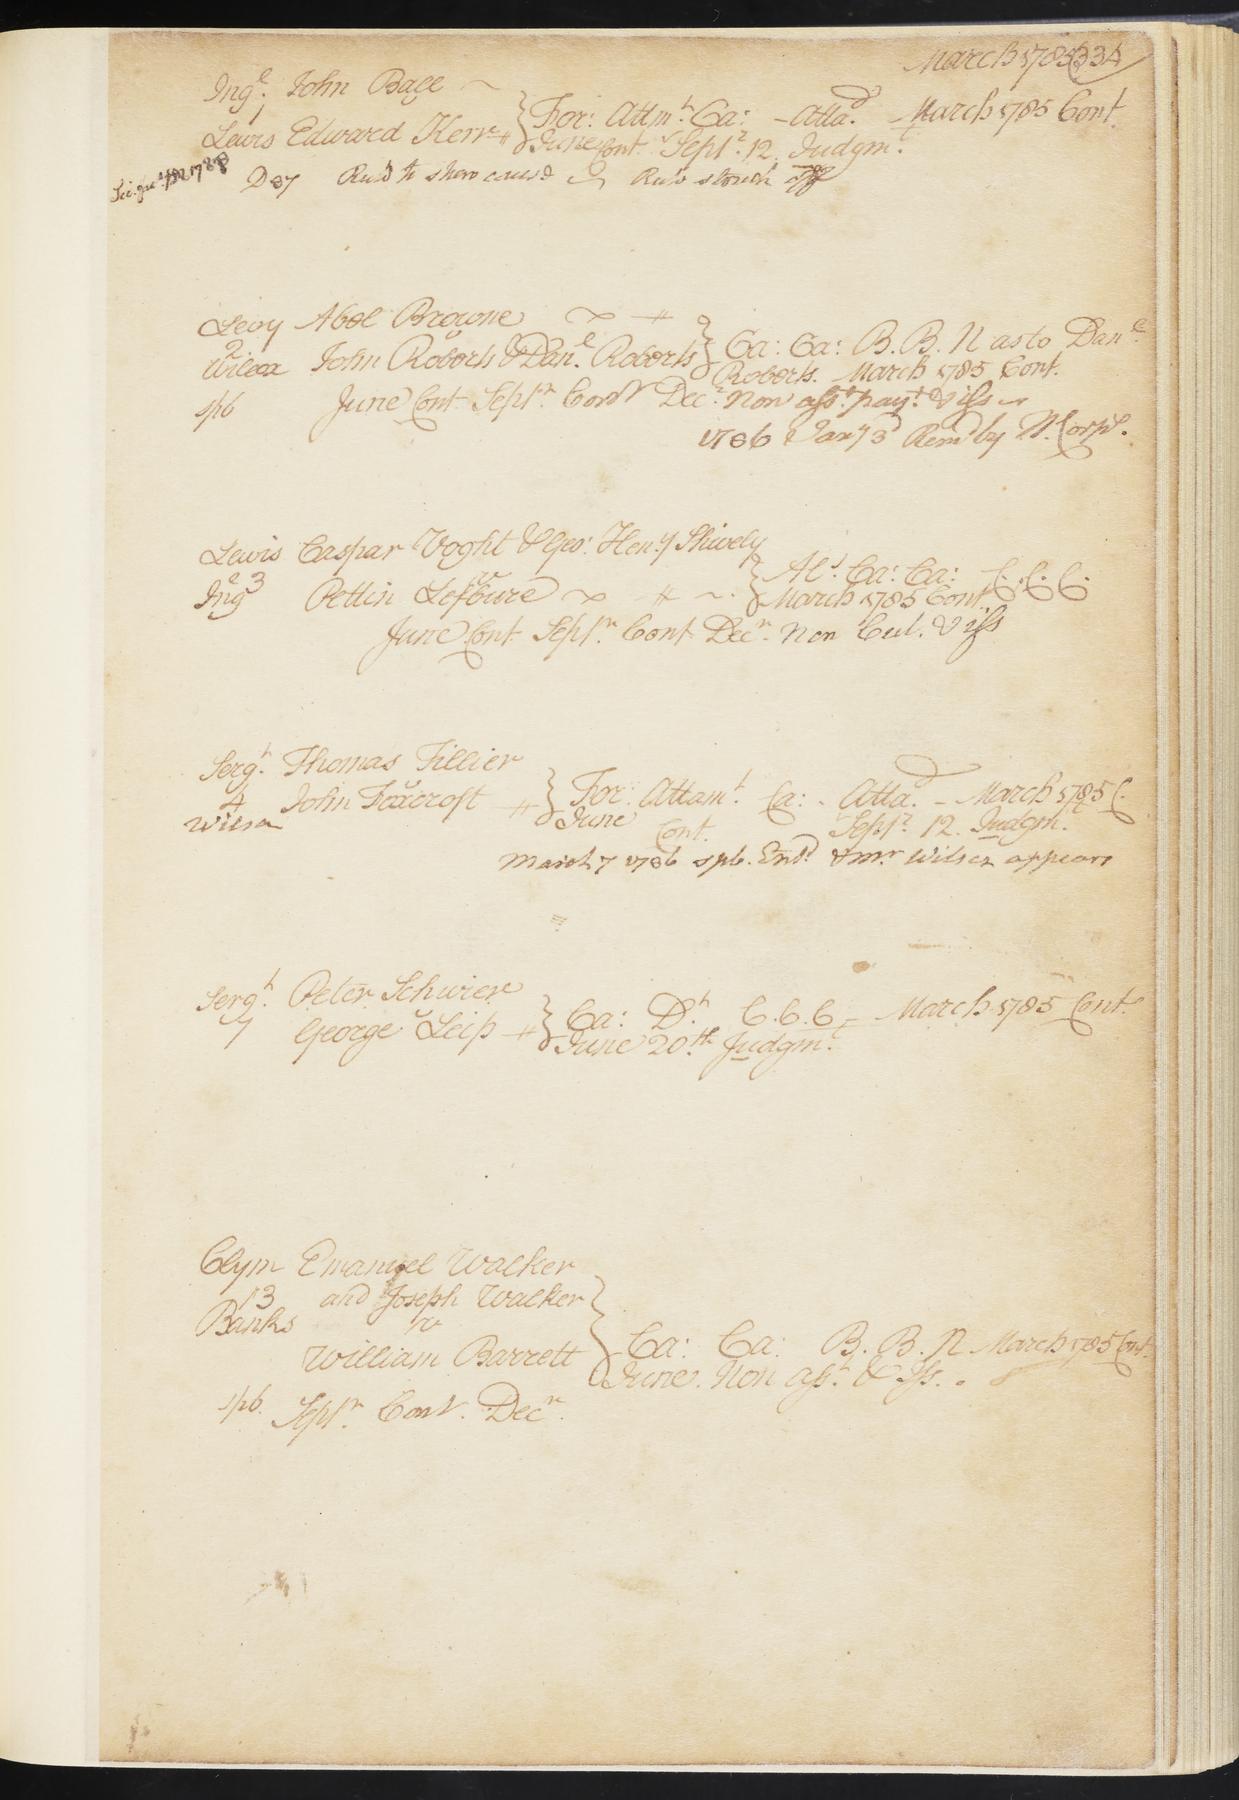 March 1785 334
Ing.l John Bale
1
Lewis Edward Kerr } For: Attm.t Ca: - Atta.d March 1785 Cont.
June Cont. Sept.r 12. Judgm.t
D 87 Rule to shew cause Rule struck off
Levy Abel Browne
2
Wilcox John Roberts & Dan.l Roberts } Ca: Ca: B. B. N as to Dan.l
Roberts. March 1785 Cont.
spb June Cont Sept.r Cont Dec.r Non ass.t pay.t & iss
1786 Jan.y 3.d Rem.d by H. Corp.s
Lewis Caspar Voght & Geo: Hen.y Shively
3 v
Ing.l Pettin Lefbure } Al.s Ca: Ca: C. C. C
March 1785 Cont.
June Cont Sept.r Cont Dec.r Non Cul. & iss
Serg.t Thomas Tillier
4 v
Wilson John Foxcroft } For: Attam.t Ca: - Atta.d - March 1785 C.
June Cont. Sept.r 12. Judgm.t
March 7 1786 spb. End.d & mr. Wilson appears
Serg.t Peter Schwier
7 v
George Leip } Ca: D.t C. C. C - March 1785 Cont.
June 20.th Judgm.t
Clym Emanuel Walker
13 and Joseph Walker
Banks v
William Barrett } Ca: Ca: B. B. N March 1785 Cont.
June. Non ass.t & Iss.
spb. Sept.r Cont. Dec.r